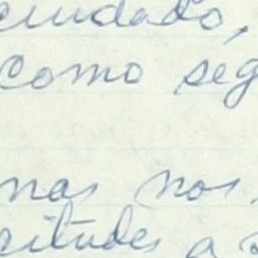 cuidado,
como ség
nas nos
citudes a